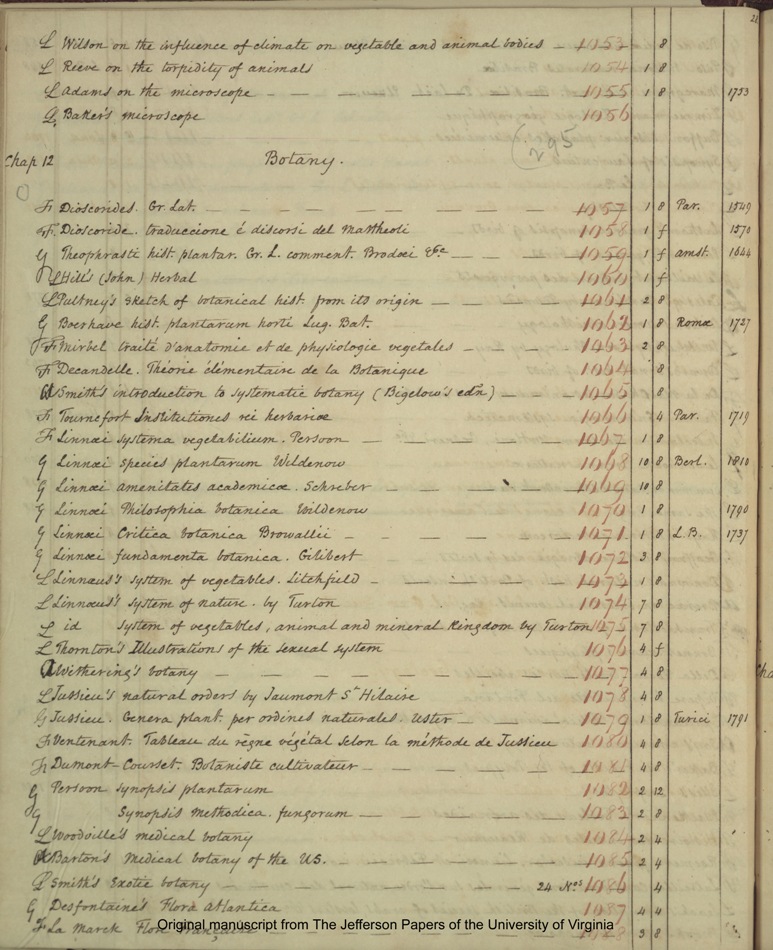 21
L Wilson on the influence of climate on vegetable and animal bodies — 1053 8
L Reeve on the torpidity of animals 1054 1 8
L Adams on the microscope — — — — — — — 1055 1 8 1753
L Baker's microscope 1056
Chap 12 Botany. (295
Fr Dioscorides. Gr. Lat. — — — — — — — — 1057 1 8 Par. 1549
Fr. Dioscoride. traduccione é discorsi del Mattheoli 1058 1 f 1570
G Theophrasti hist. plantar. Gr. L. comment. Brodœi &c — — — 1059 1 f amst. 1644
L Hill's (John) Herbal 1060 1 f
L Pultney's sketch of botanical hist. from its origin — — — — 1061 2 8
G Boerhave hist. plantarum horti Lug. Bat. 1062 1 8 Romæ 1727
Fr Mirbel traité d'anatomie et de physiologie vegetales — — — — 1063 2 8
Fr Decandelle. Théorie élementaire de la Botanique 1064 8
Smith's introduction to systematic botany (Bigelow's edn) — — — 1065 8
Fr Tournefort Institutiones rei herbariæ 1066 4 Par. 1719
Fr Linnæi systema vegetabilium. Persoon — — — — — — 1067 1 8
G Linnæi species plantarum Wildenow 1068 10 8 Berl. 1810
G Linnæi amenitates academicæ. Schreber — — — — — 1069 10 8
G Linnæi Philosophia botanica Wildenow 1070 1 8 1790
G Linnæi Critica botanica Browallii — — — — — — 1071 1 8 L.B. 1737
G Linnæi fundamenta botanica. Gilibert 1072 3 8
L Linnæus's system of vegetables. Litchfield — — — — — 1073 1 8
L Linnæus's system of nature. by Turton 1074 7 8
L id system of vegetables, animal and mineral kingdom by Turton 1075 7 8
L Thornton's Illustrations of the sexual system 1076 4 f
Withering's botany — — — — — — — — 1077 4 8
L Jussieu's natural orders by Jaumont St Hilaire 1078 4 8
G Jussieu. Genera plant. per ordines naturales. Uster — — — — 1079 1 8 Turici 1791
Fr Ventenant. Tableau du règne végétal selon la méthode de Jussieu 1080 4 8
Fr Dumont-Courset. Botaniste cultivateur — — — — — — 1081 4 8
G Persoon synopsis plantarum 1082 2 12
G Synopsis methodica. fungorum — — — — — — 1083 2 8
L Woodville's medical botany 1084 2 4
Barton's medical botany of the US. — — — — — — 1085 2 4
L Smith's Exotic botany — — — — — — 24 Nos 1086 4
G Desfontaine's Flora Atlantica 1087 4 4
Fr La Marck Flore Française 1088 3 8
Cha
Original manuscript from The Jefferson Papers of the University of Virginia